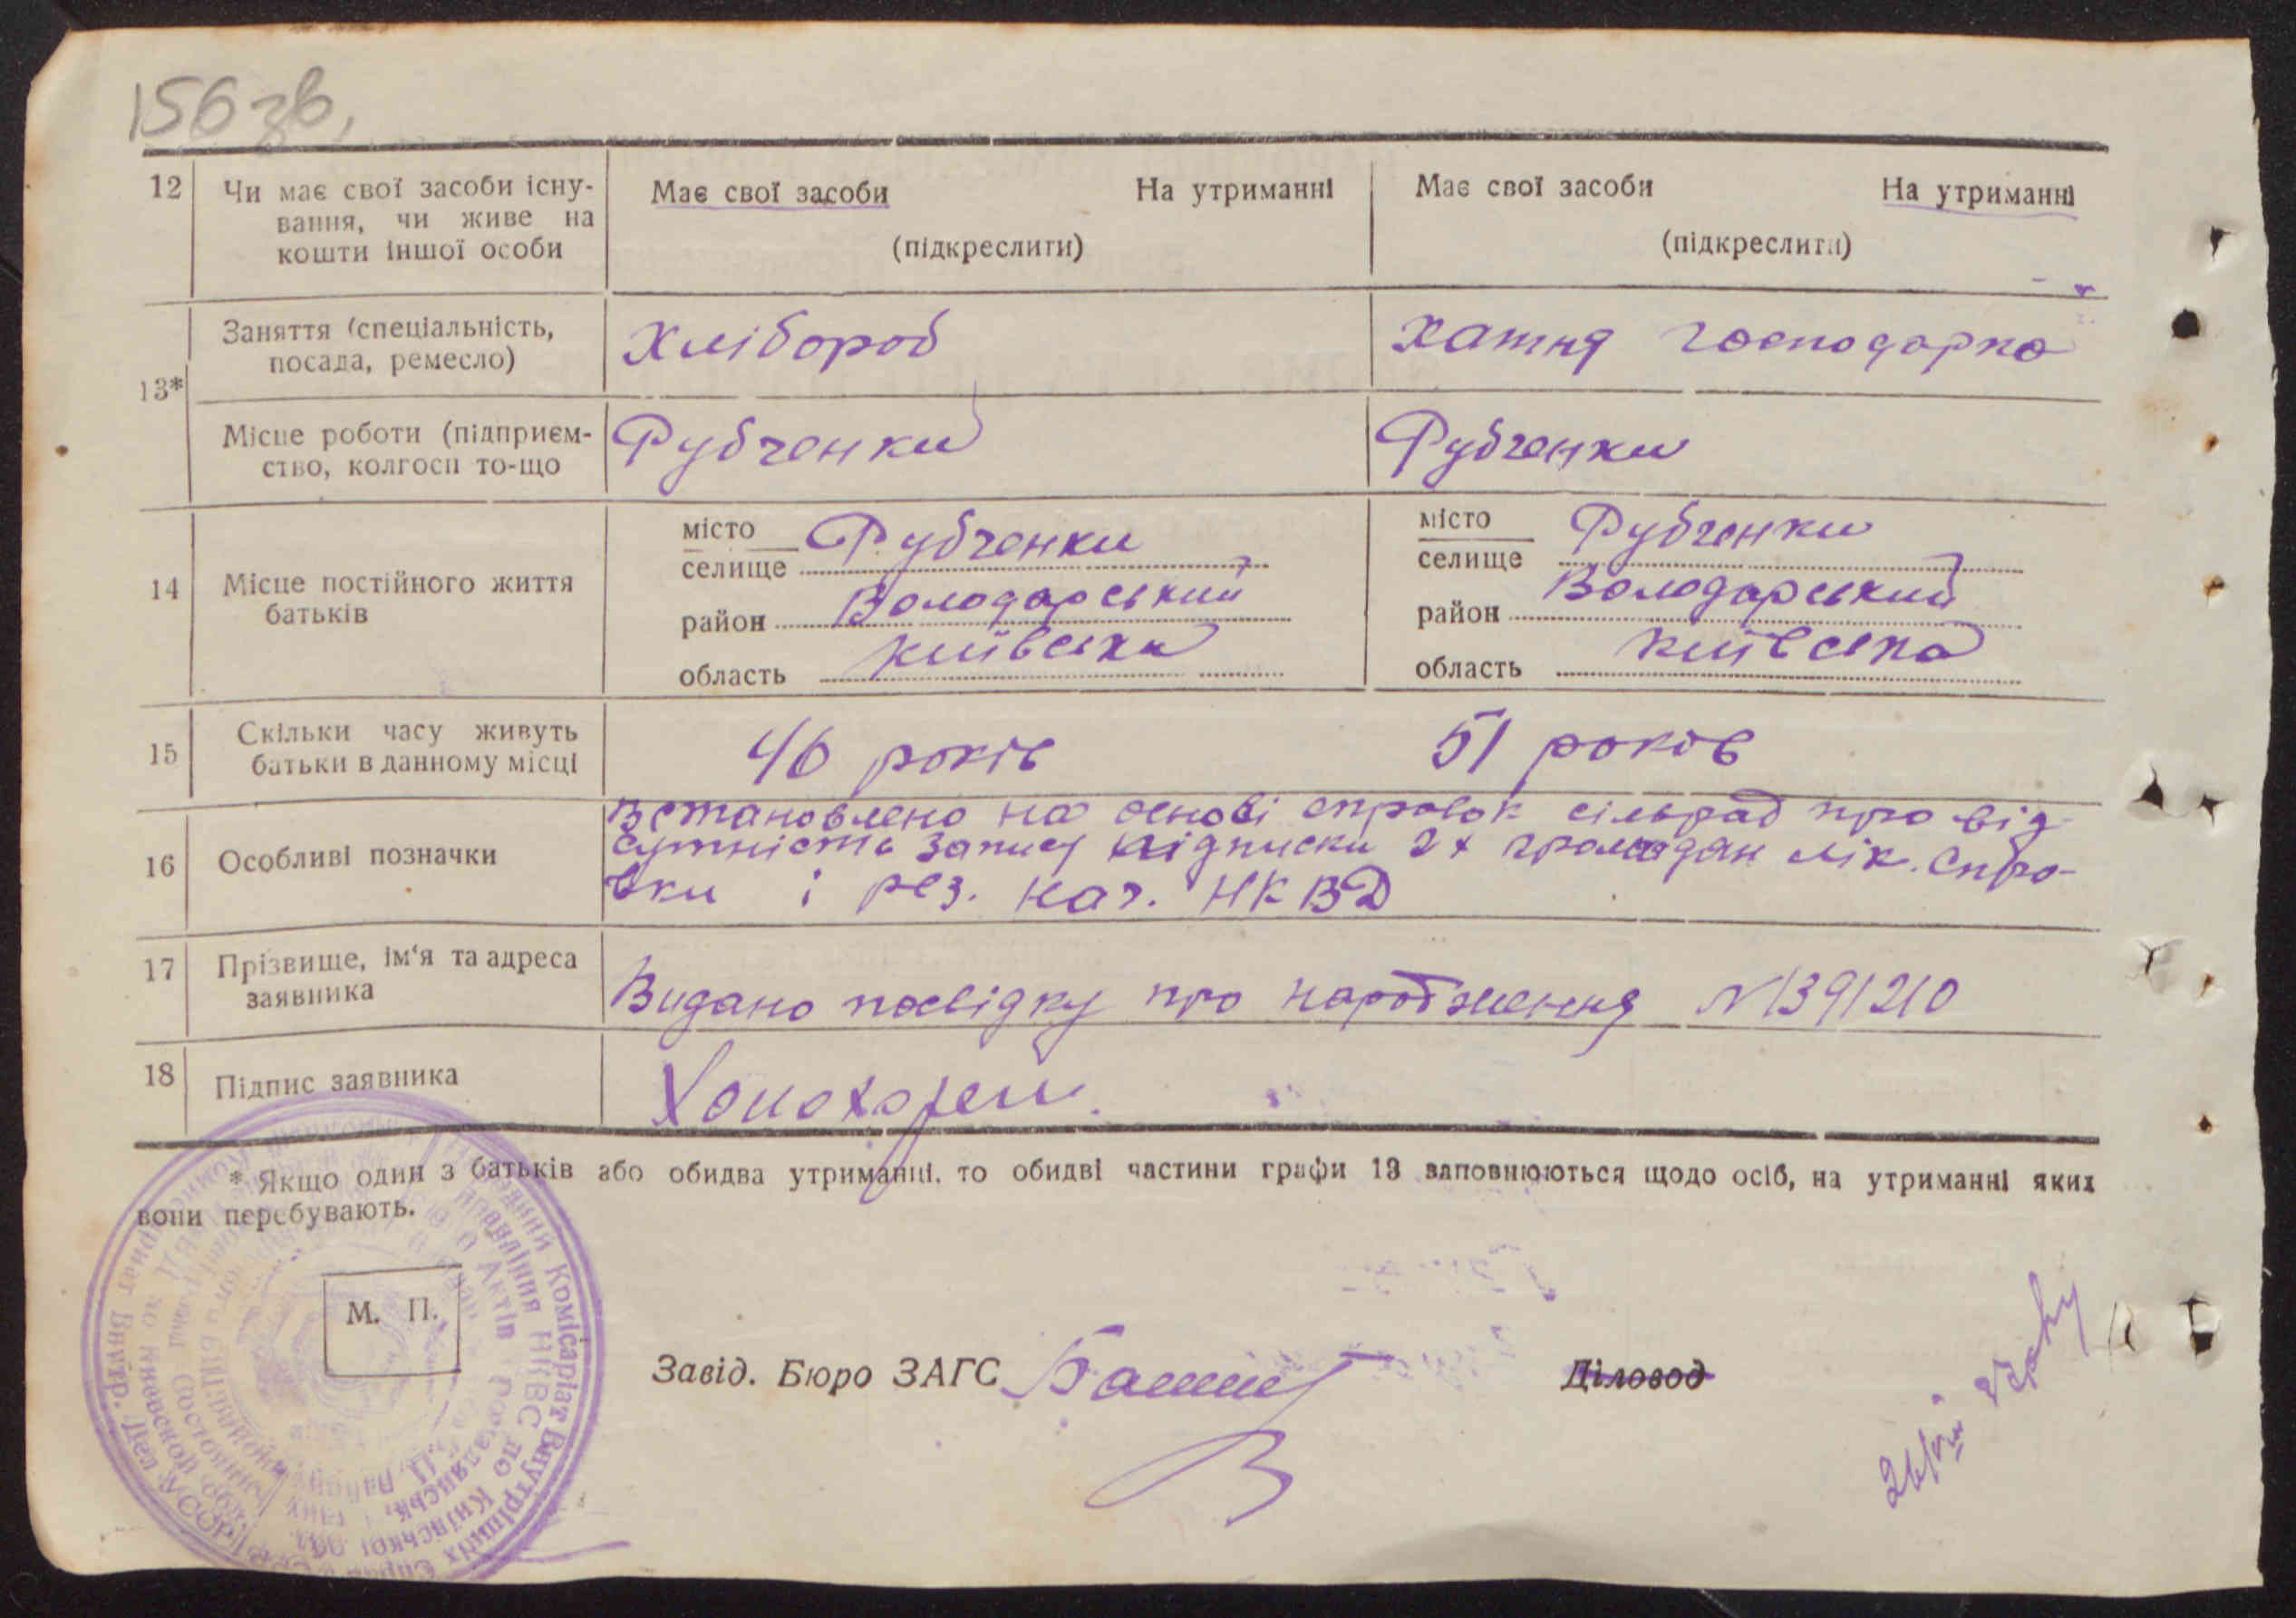 156 зв,
12 Чи має свої засоби існу-
вання, чи живе на
кошти іншої особи
Має свої засоби На утриманні
(підкреслити)
Має свої засоби На утриманні
(підкреслити)
13*
Заняття (спеціальність,
посада, ремесло)
Хлібороб
хатня господарка
Місце роботи (підприєм-
ство, колгосп то-що
Рубченки
Рубченки
14 Місце постійного життя
батьків
місто
селище Рубченки
район Володарський
область київська
місто
селище Рубченки
район Володарський
область київська
15 Скільки часу живуть
батьки в данному місці
46 років
51 років
16 Особливі позначки
Встановлено на основі справок сільрад про від-
сутність запису підписки 2х громадян лік. спра-
вки і рез. нач. НКВД
17 Прізвище, ім'я та адреса
заявника
Видано посвідку про народження N 1391210
18 Підпис заявника
* Якщо один з батьків або обидва утриманці, то обидві частини графи 13 заповнюються щодо осіб, на утриманні яких
вони перебувають.
М. П.
Завід. Бюро ЗАГС
Діловод